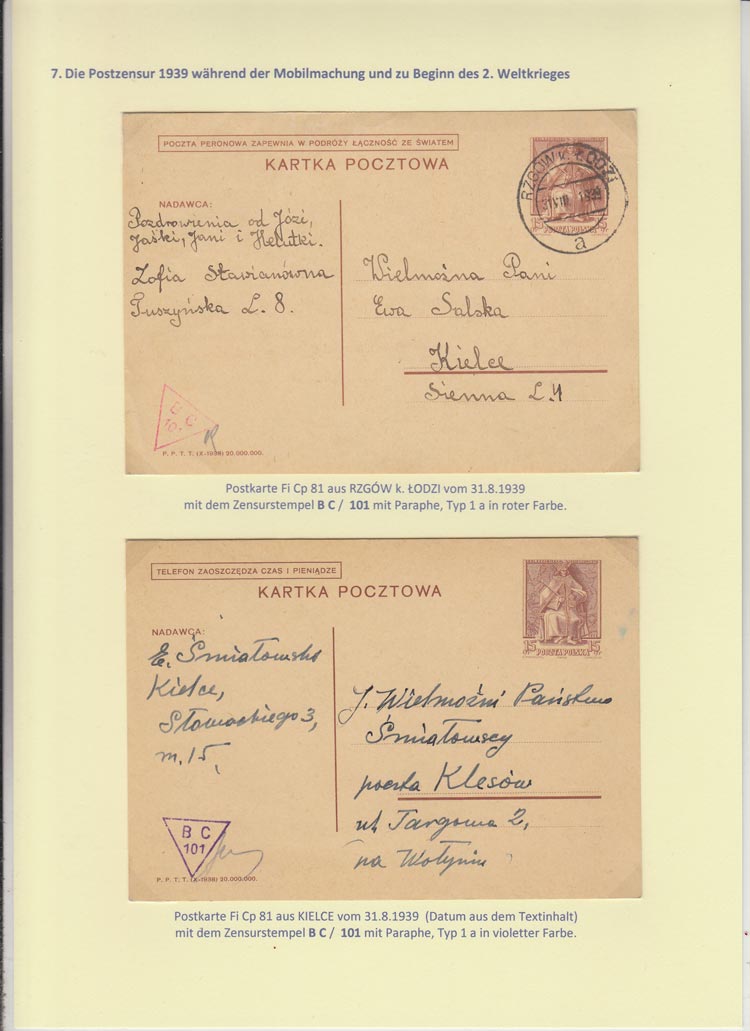 7. Die Postzensur 1939 während der Mobilmachung und zu Beginn des 2. Weltkrieges
POCZTA PERONOWA ZAPEWNIA W PODRÓŻY ŁĄCZNOŚĆ ZE ŚWIATEM
KARTKA POCZTOWA
RZGÓW k. ŁODZI
31 VIII 1939
a
15 POCZTA POLSKA 15
NADAWCA:
Pozdrowienia od Józi,
Jaśki, Jani i Helutki.
Zofia Stawianówna
Tuszyńska L. 8.
Wielmożna Pani
Ewa Salska
Kielce
Sienna L. 4
B C
101
P. P. T. T. (X-1938) 20.000.000.
Postkarte Fi Cp 81 aus RZGÓW k. ŁODZI vom 31.8.1939
mit dem Zensurstempel B C / 101 mit Paraphe, Typ 1 a in roter Farbe.
TELEFON ZAOSZCZĘDZA CZAS I PIENIĄDZE
KARTKA POCZTOWA
15 POCZTA POLSKA 15
NADAWCA:
E. Śmiałowska
Kielce,
Słowackiego 3,
m. 15,
J. Wielmożni Państwo
Śmiałowscy
poczta Klesów
ul. Targowa 2,
na Wołyniu
B C
101
P. P. T. T. (X-1938) 20.000.000.
Postkarte Fi Cp 81 aus KIELCE vom 31.8.1939 (Datum aus dem Textinhalt)
mit dem Zensurstempel B C / 101 mit Paraphe, Typ 1 a in violetter Farbe.